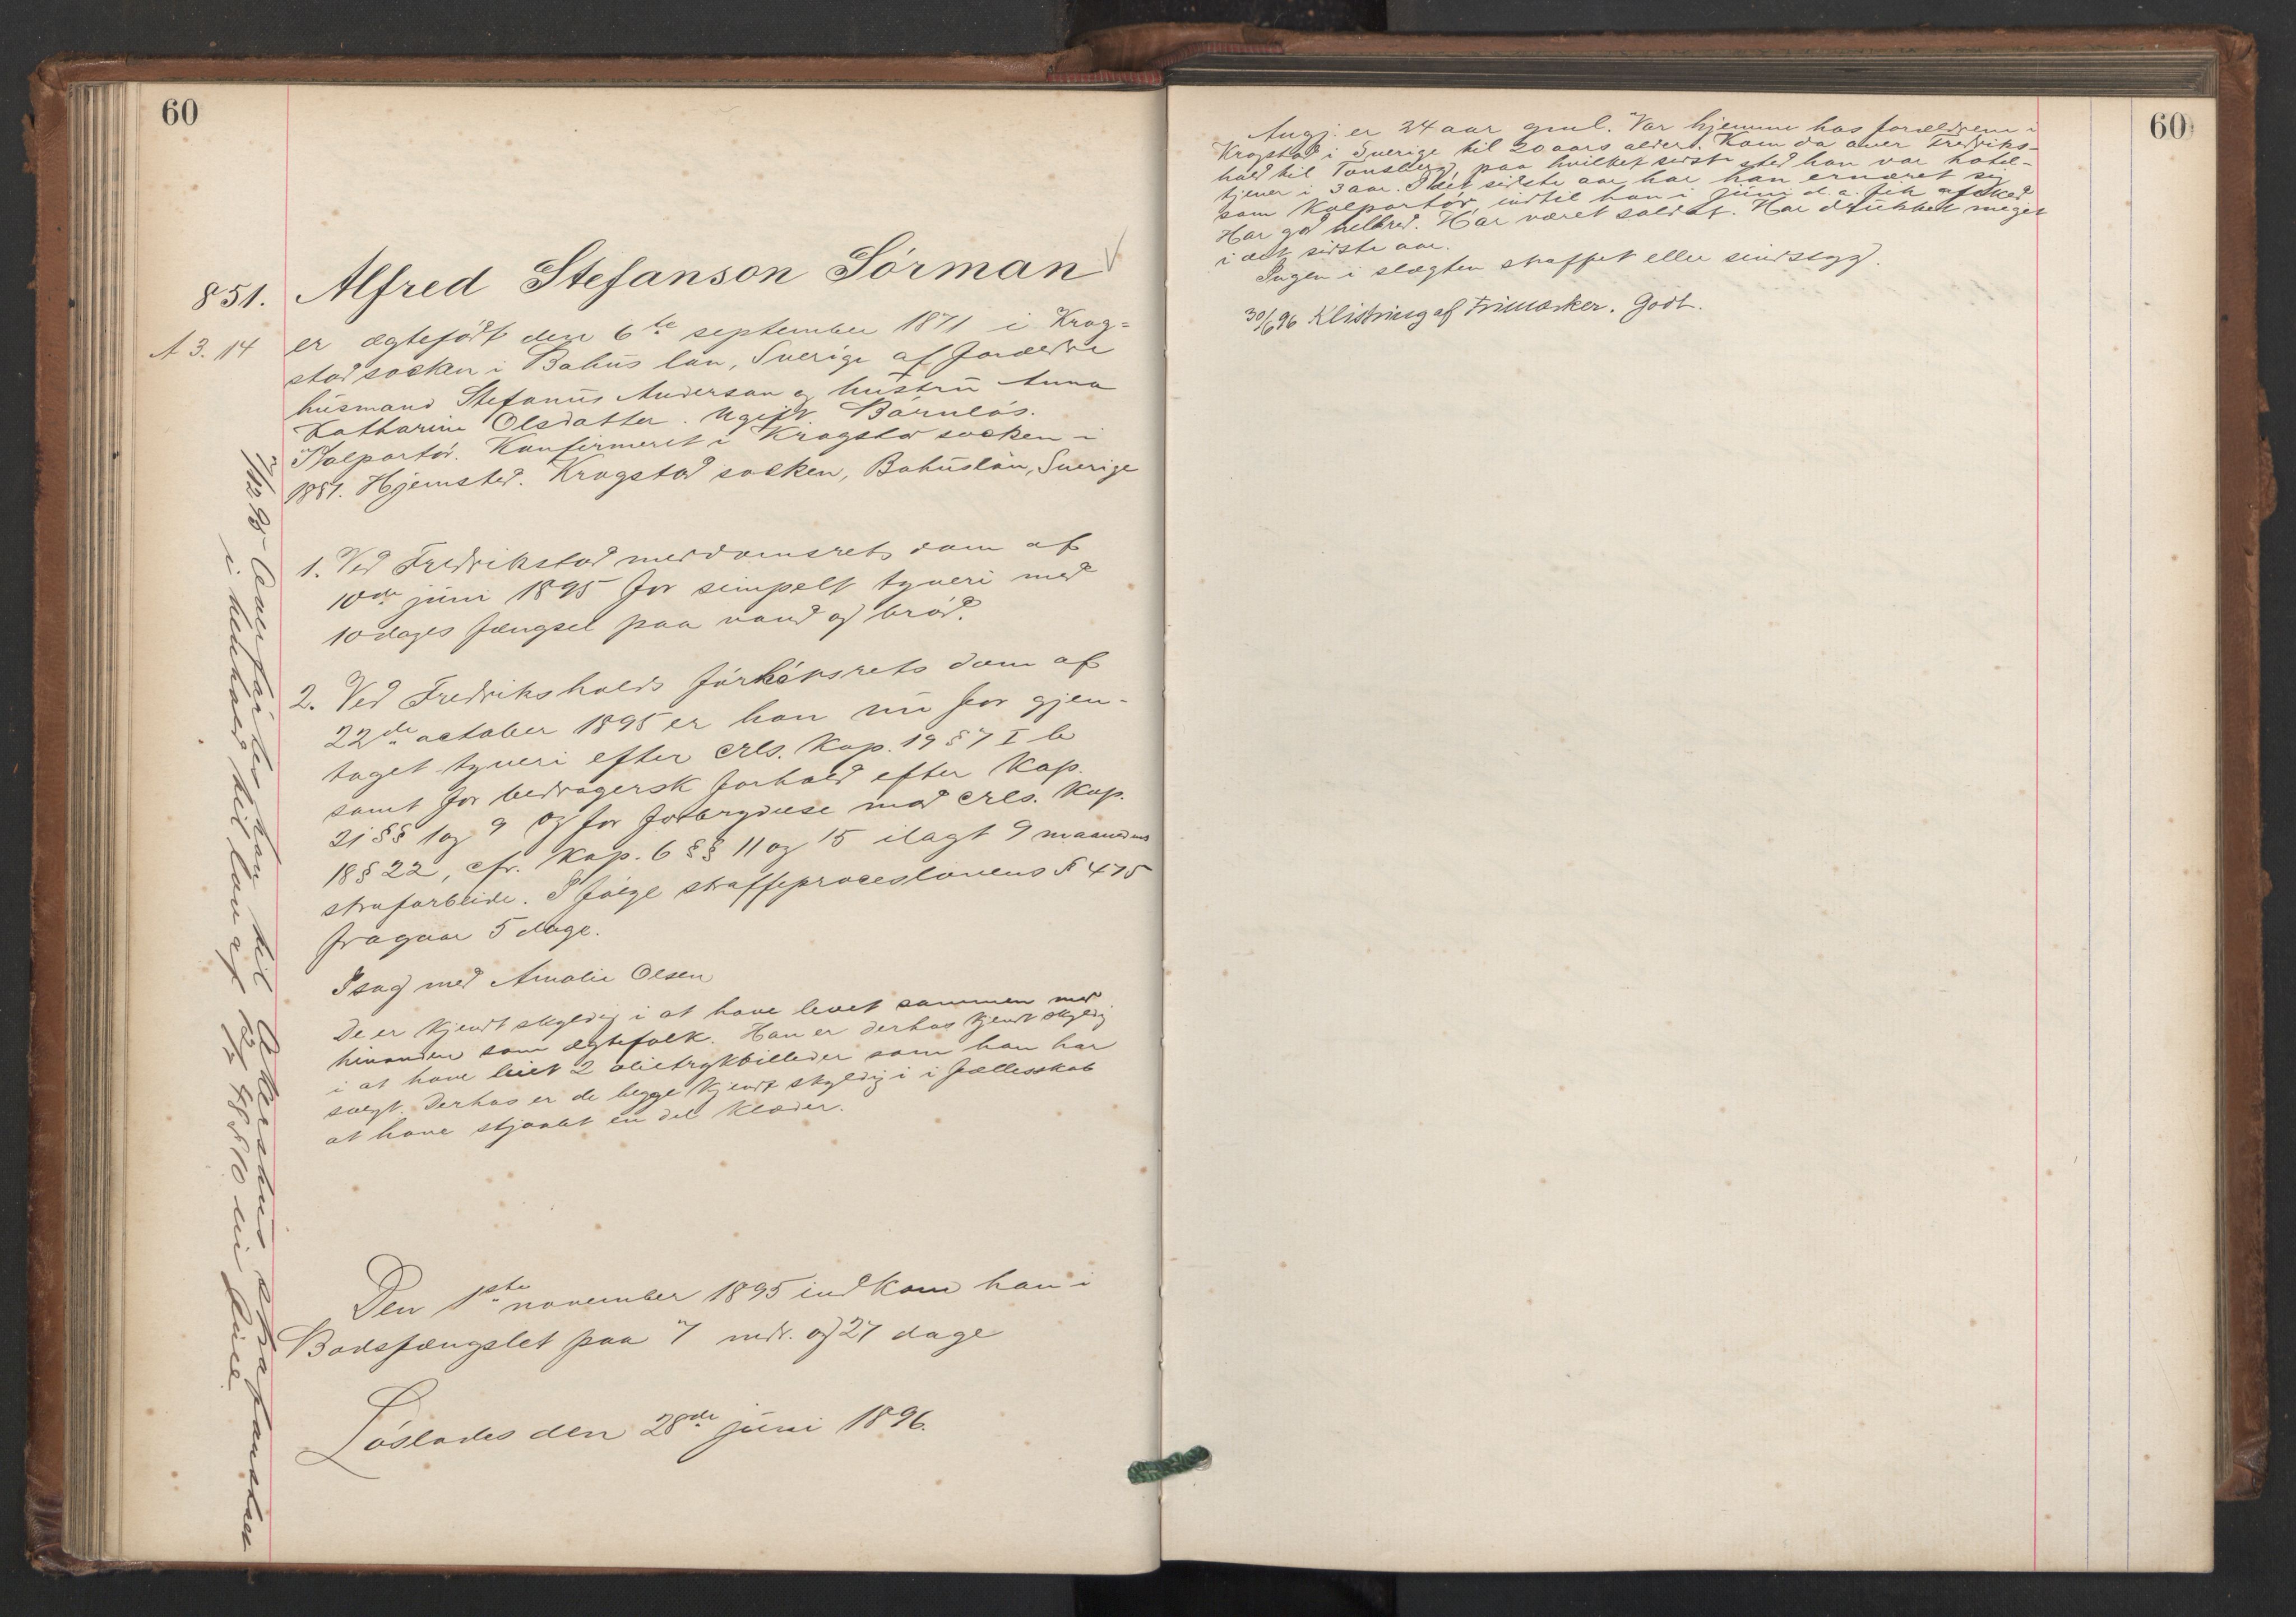 60
851. Alfred Stefanson Sörman
A 3. 14
er ægtefödt den 6te september 1871 i Krog=
stad socken i Bahus län, Sverige af forældre
husmand Stefanus Anderson og hustru Anna
Katharine Olsdatter. Ugift. Barnlös.
Kolportör. Konfirmeret i Krogstad socken i
1887. Hjemsted. Krogstad socken, Bahuslän, Sverige
1. Ved Fredrikstad meddomsrets dom af
10de juni 1895 for simpelt tyveri med
10 dages fængsel paa vand og bröd.
2. Ved Fredrikshalds forhörsrets dom af
22de october 1895 er han nu for gjen-
taget tyveri efter crls. Kap. 19 § 7 I b
samt for bedragersk forhold efter Kap.
21 §§ 1 og 9 og for forbrydelse mod crls. Kap.
18 § 22, cfr. Kap. 6 §§ 11 og 15 ilagt 9 maaneders
strafarbeide. I fölge straffeproceslovens § 475
fragaar 5 dage.
I sag med Amalie Olsen
De er kjendt skyldig i at have levet sammen med
hinanden som ægtefolk. Han er derhos kjendt skyldig
i at have leiet 2 olietrykbilleder som han har
solgt. Derhos er de begge kjendt skyldig i i fællesskab
at have stjaalet en del klæder.
Den 1ste november 1895 indkom han i
Bodsfængslet paa 7 mdr. og 27 dage
Löslades den 28de juni 1896.
7/12 95 Overförtes han til Akershus strafanstalt
i henhold til lov af § 10 in fine.
60
Angj. er 24 aar gml. Var hjemme hos forældrene i
Krogstad i Sverige til 20 aars alder. Kom da over Fredriks-
hald til Tønsberg, paa hvilket sidste sted han var hotel-
tjener i 3 aar. I det sidste aar har han ernæret sig
som Kolportör, indtil han i juni d. a. fik afsked.
Har god helbred. Har været soldat. Har drukket meget
i det sidste aar.
Ingen i slægten straffet eller sindssyg.
30/6 96 Klistring af Frimærker. Godt.